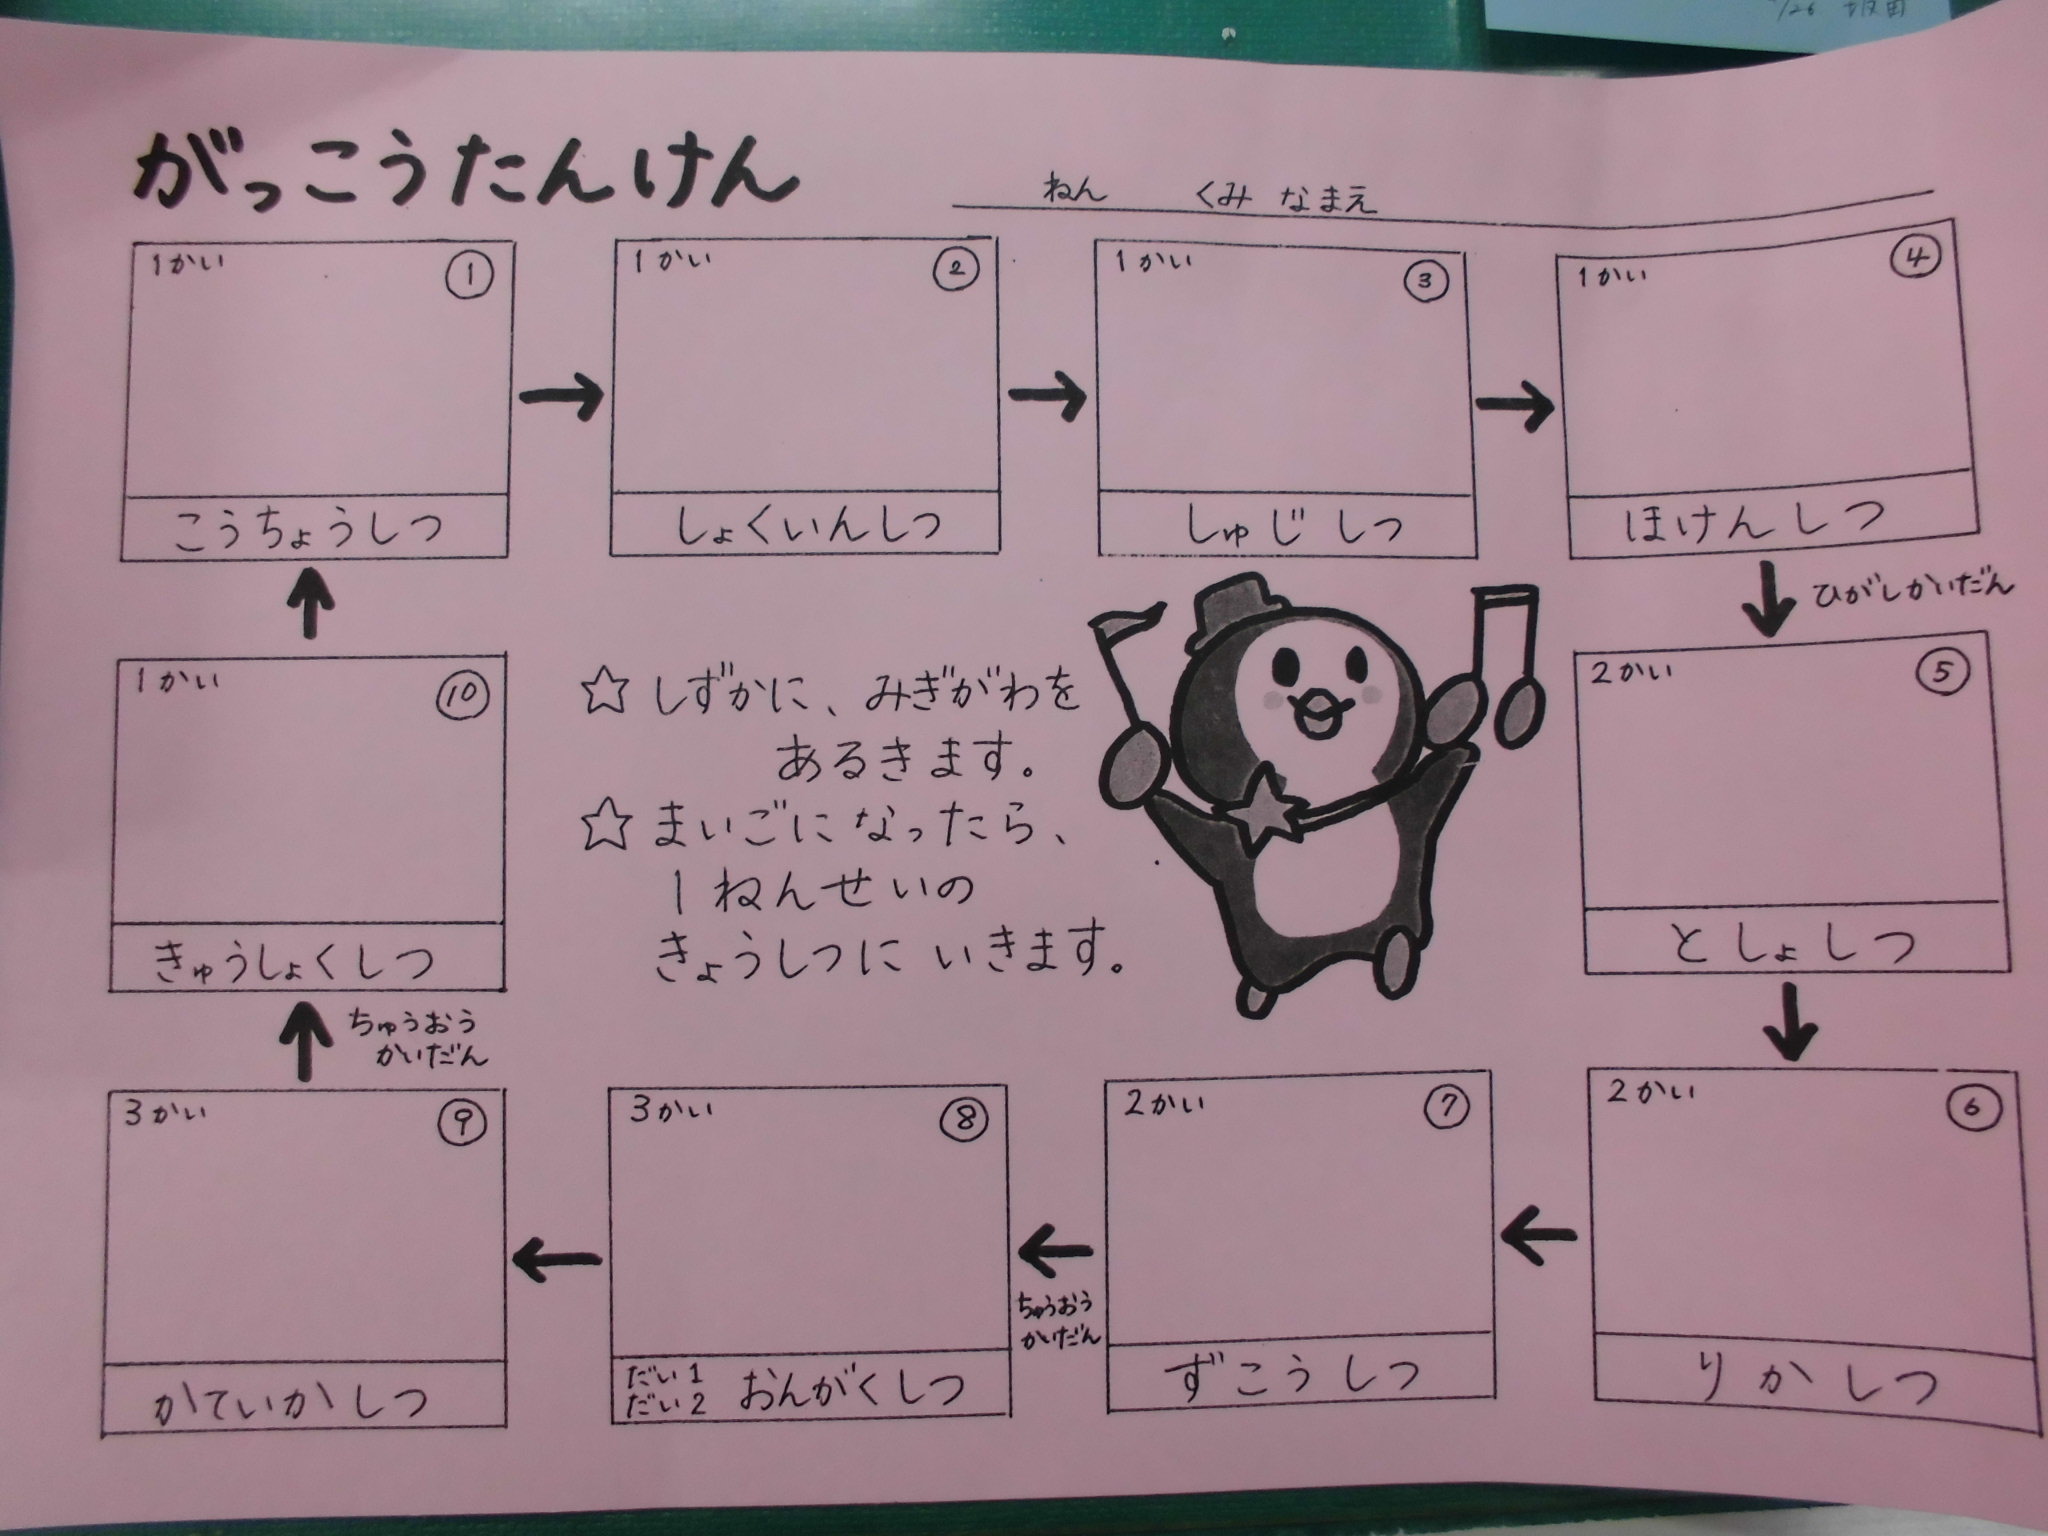 /26 坂田
がっこうたんけん
ねん くみ なまえ
1かい ①
こうちょうしつ
1かい ②
しょくいんしつ
1かい ③
しゅじしつ
1かい ④
ほけんしつ
ひがしかいだん
2かい ⑤
としょしつ
2かい ⑥
りかしつ
2かい ⑦
ずこうしつ
ちゅうおう
かいだん
3かい ⑧
だい1
だい2 おんがくしつ
3かい ⑨
かていかしつ
ちゅうおう
かいだん
1かい ⑩
きゅうしょくしつ
☆ しずかに、みぎがわを
あるきます。
☆ まいごになったら、
1ねんせいの
きょうしつに いきます。